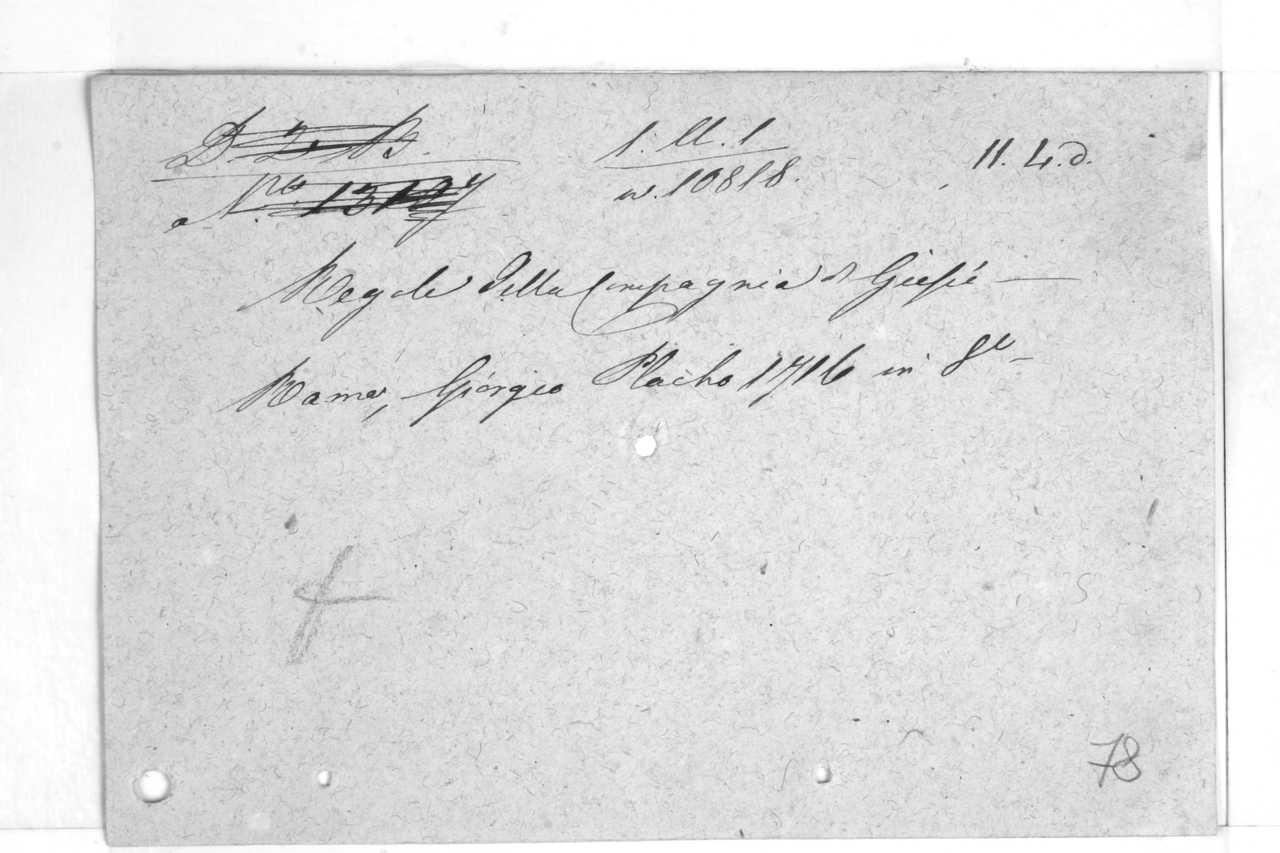 D. 2. B.
N.ro 1312
1. U. 1
n. 10818.
11. 4. d.
Regole della Compagnia di Giesù —
Roma, Giorgio Placho 1716 in 8º
78